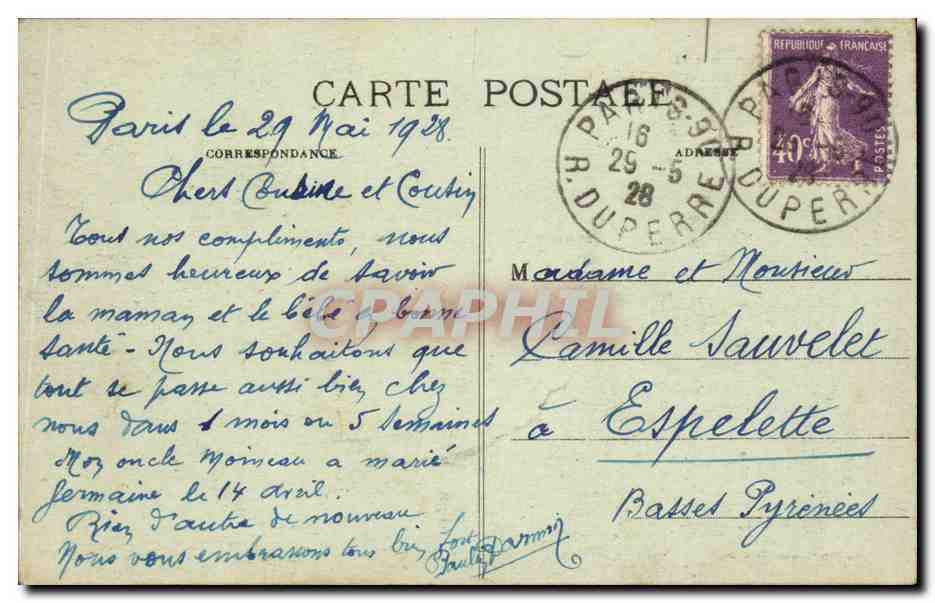 CARTE POSTALE
Paris le 29 Mai 1928
CORRESPONDANCE
Chers Cousine et Cousin
Tous nos compliments, nous
sommes heureux de savoir
la maman et le bébé en bonne
santé - Nous souhaitons que
tout se passe aussi bien chez
nous dans 1 mois ou 5 semaines
Mon oncle Moineau a marié
Germaine le 14 avril.
Rien d'autre de nouveau
Nous vous embrassons tous bien fort
Paule
ADRESSE
REPUBLIQUE FRANÇAISE
40c
POSTES
PARIS-90
16
29-5
28
R. DUPERRE
PARIS-90
R. DUPERRE
Madame et Monsieur
Camille Sauvelet
à Espelette
Basses Pyrénées
CPAPHIL